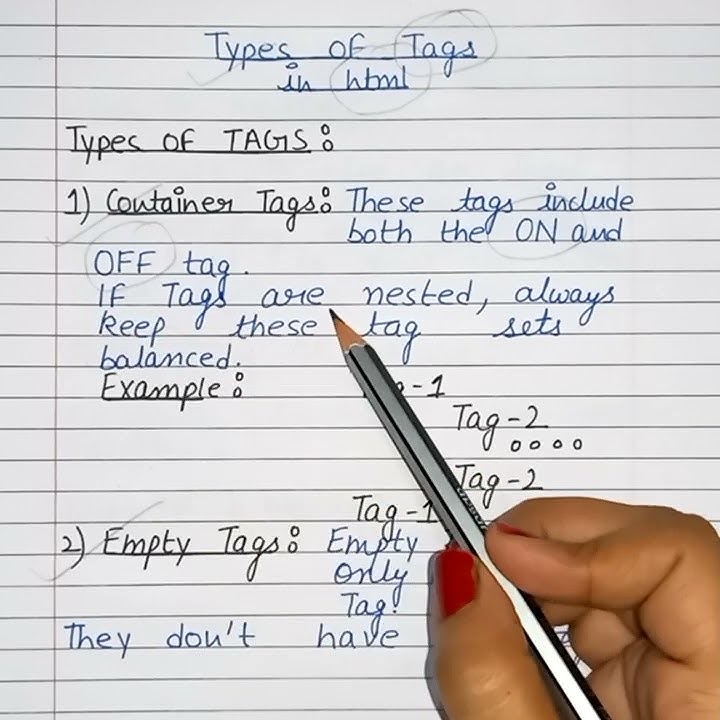 Types of Tags
in html
Types of TAGS:
1) Container Tags: These tags include
both the ON and
OFF tag.
If Tags are nested, always
keep these tag sets
balanced.
Example:
Tag-2
Tag-2
Tag-1
2) Empty Tags: Empty
only
Tag.
They don't have